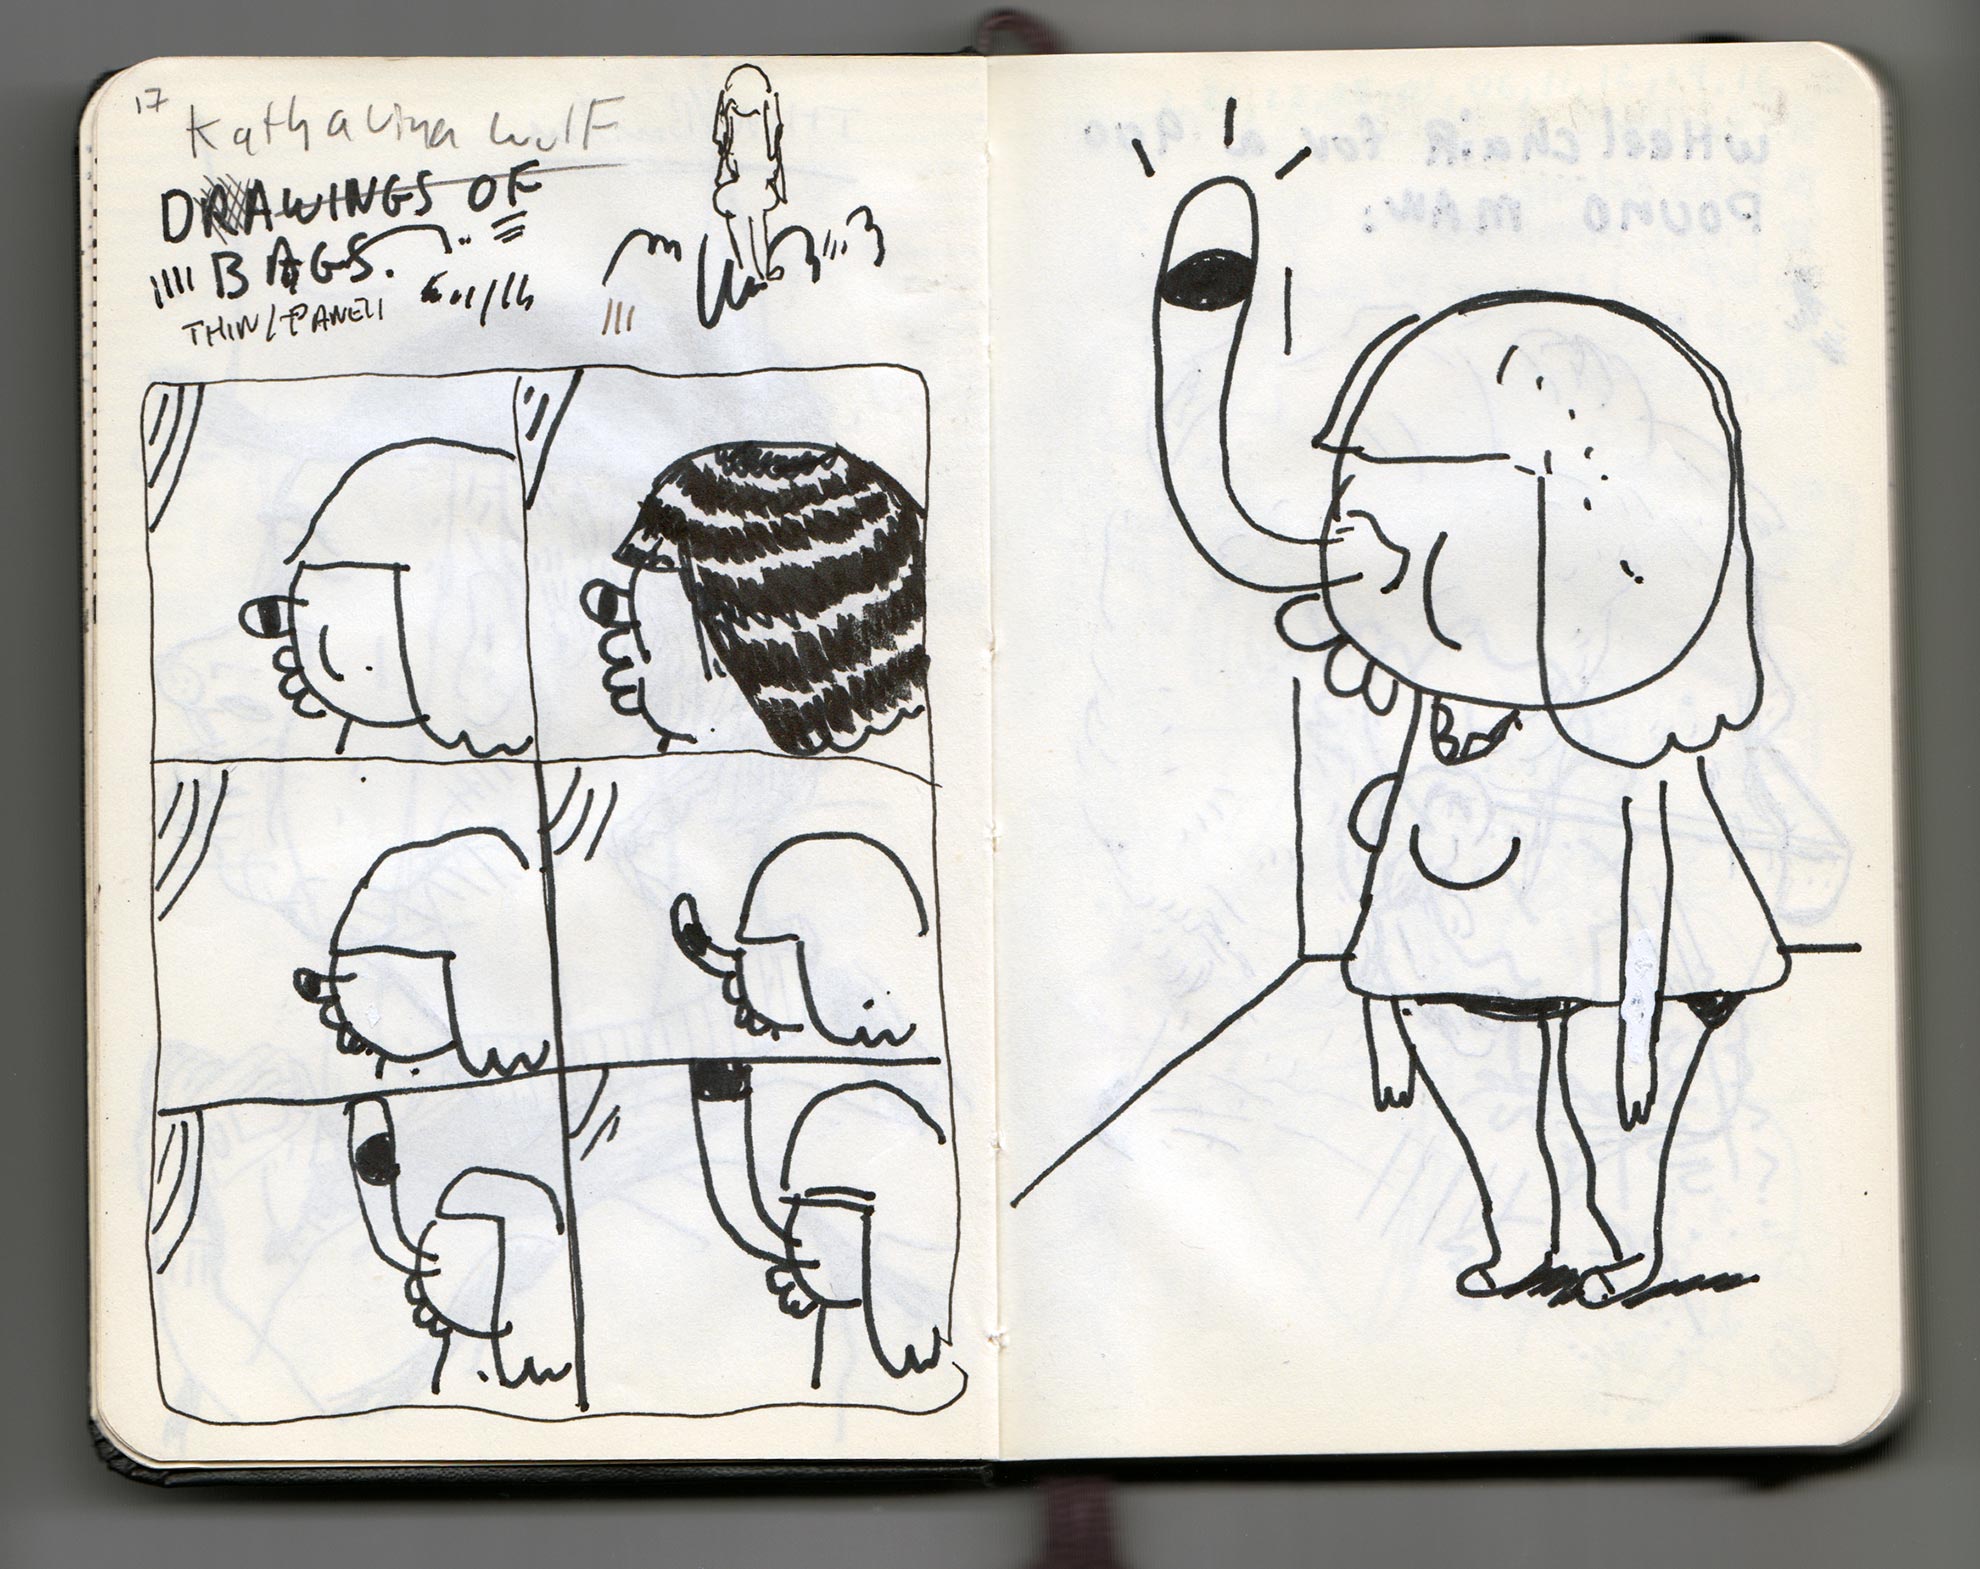 17
Katharina Wolf
DRAWINGS OF
BAGS.
THIN / PANEL
WHEEL CHAIR FOR A 900
POUND MAN.